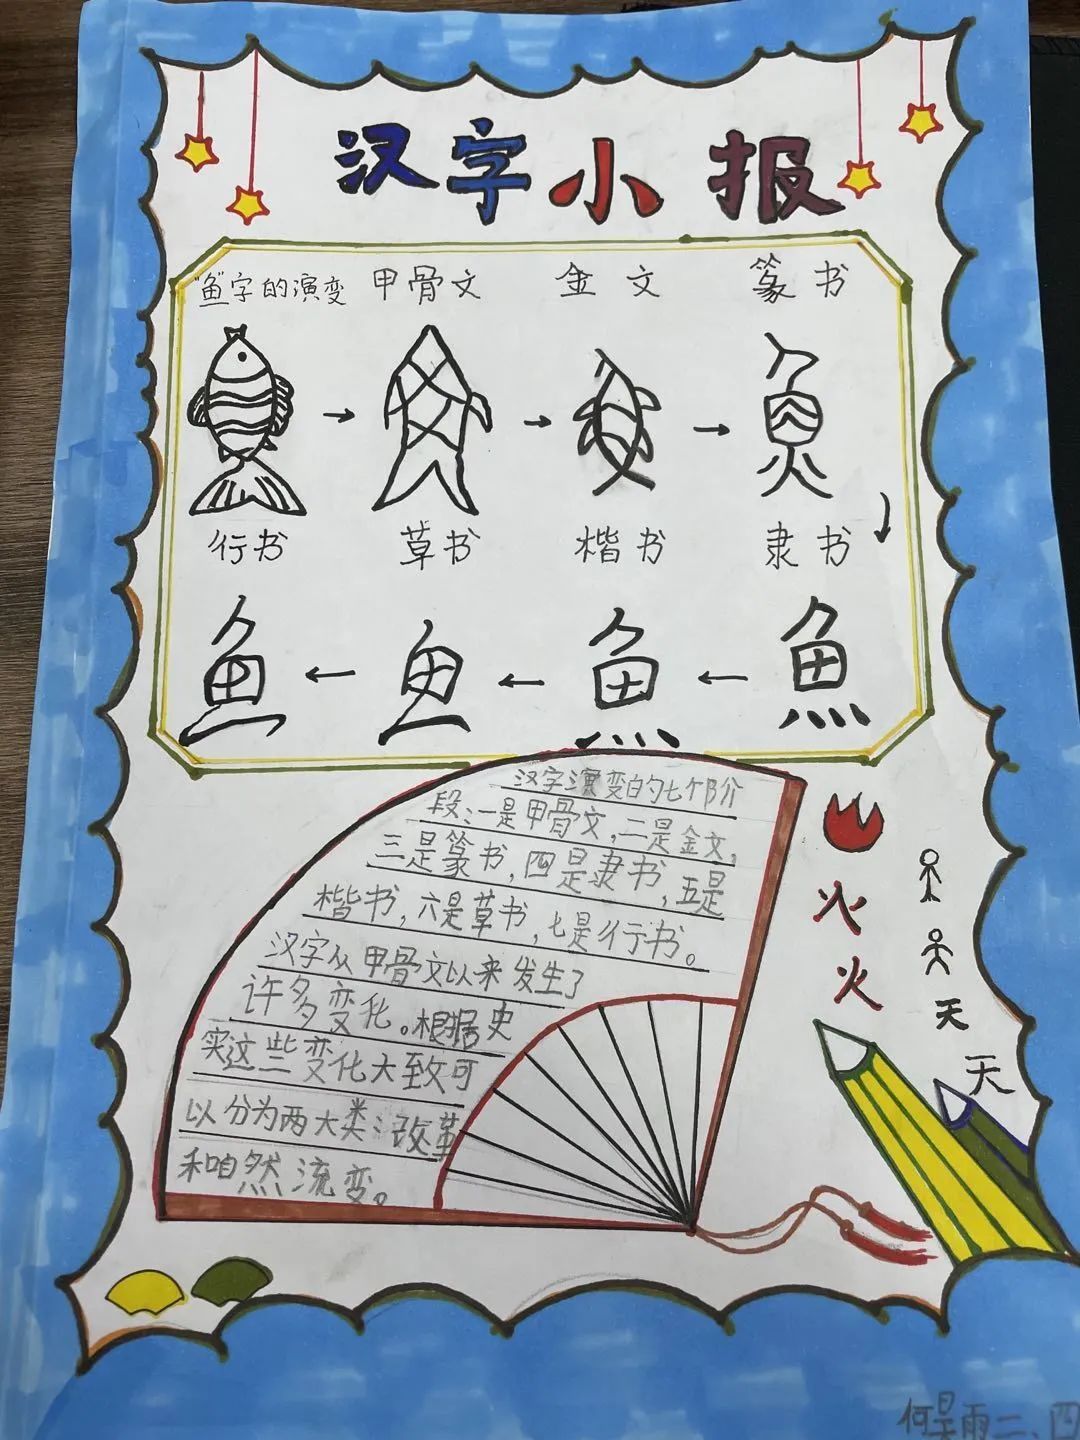 汉字小报
"鱼"字的演变 甲骨文 金文 篆书
行书 草书 楷书 隶书
鱼 鱼 魚 魚
汉字演变的七个阶
段：一是甲骨文，二是金文，
三是篆书，四是隶书，五是
楷书，六是草书，七是行书。
汉字从甲骨文以来发生了
许多变化。根据史
实这些变化大致可
以分为两大类：改革
和自然流变。
火
火
天
天
何昊雨二、四